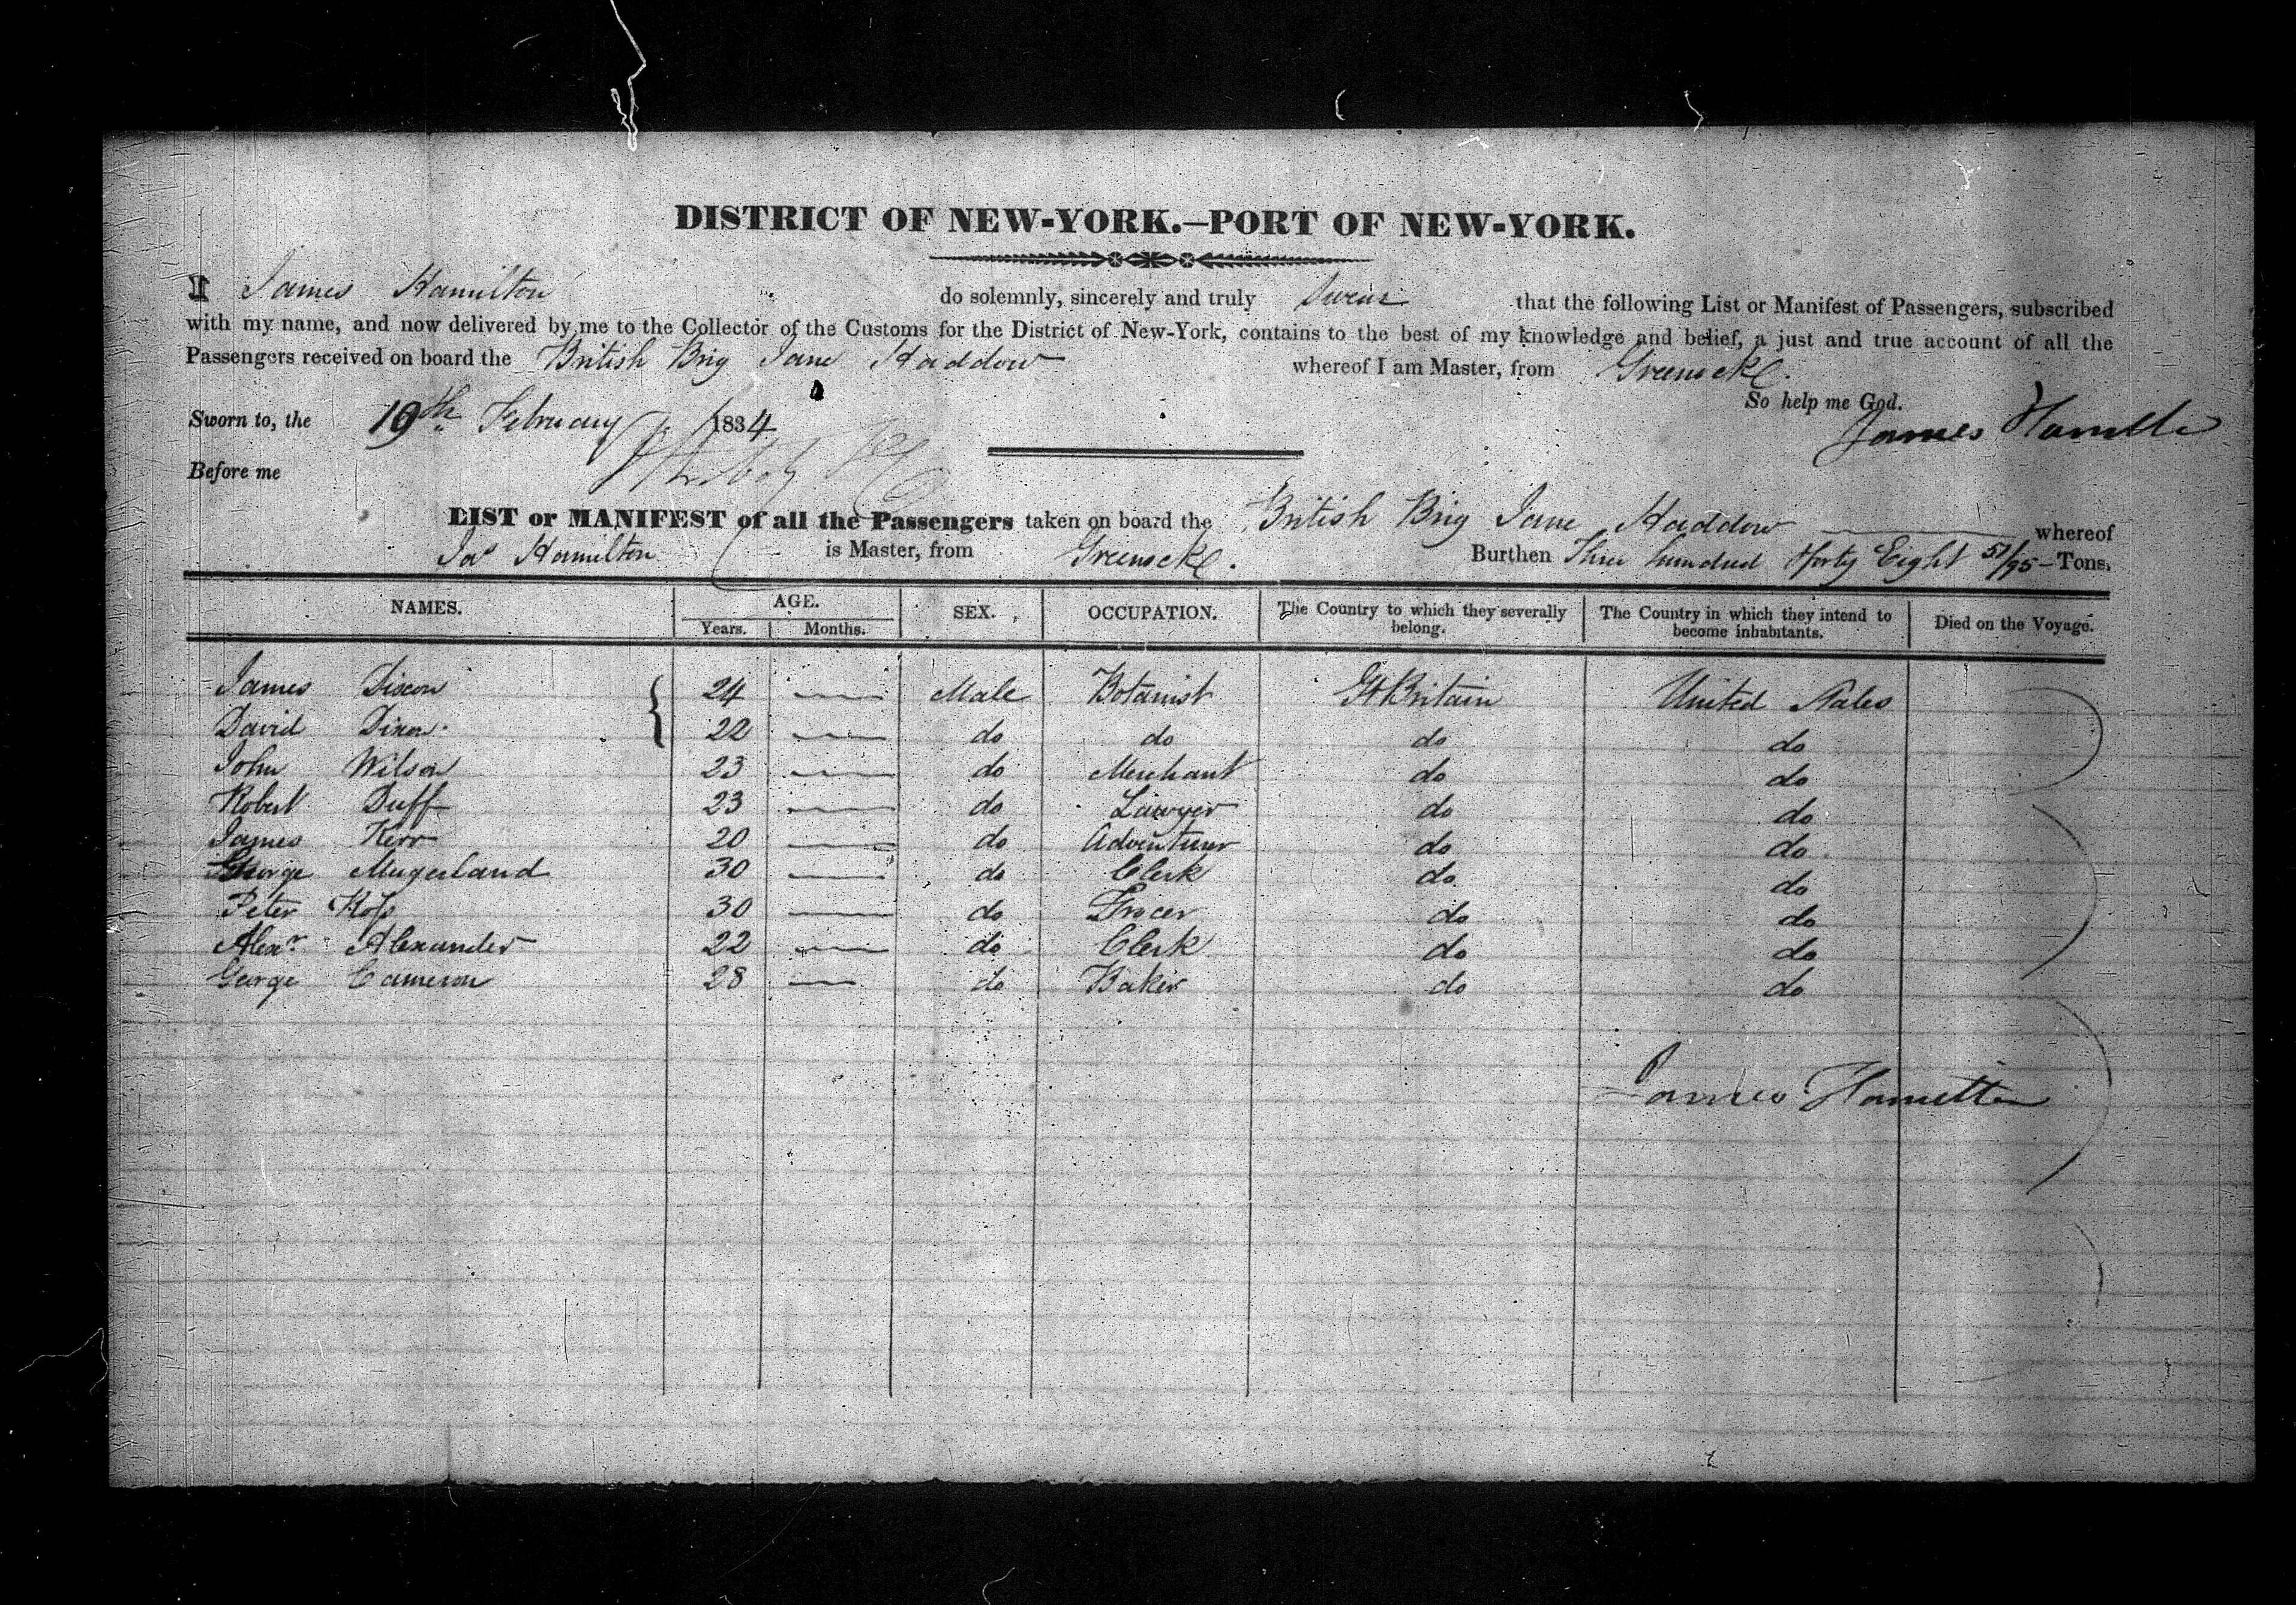 DISTRICT OF NEW-YORK.—PORT OF NEW-YORK.
I James Hamilton do solemnly, sincerely and truly Swear that the following List or Manifest of Passengers, subscribed
with my name, and now delivered by me to the Collector of the Customs for the District of New-York, contains to the best of my knowledge and belief, a just and true account of all the
Passengers received on board the British Brig Jane Haddow whereof I am Master, from Greenock.
So help me God.
Sworn to, the 19th February 1834 James Hamilton
Before me
LIST or MANIFEST of all the Passengers taken on board the British Brig Jane Haddow whereof
Jas Hamilton is Master, from Greenock. Burthen Three hundred Forty Eight 51/95 Tons.
NAMES. AGE. Years. Months. SEX. OCCUPATION. The Country to which they severally belong. The Country in which they intend to become inhabitants. Died on the Voyage.
James Dixon 24 — Male Botanist Gt Britain United States
David Dixon 22 — do do do do
John Wilson 23 — do Merchant do do
Robert Duff 23 — do Lawyer do do
James Kerr 20 — do Adventurer do do
George 30 — do Clerk do do
Peter Ross 30 — do Grocer do do
Alexr Alexander 22 — do Clerk do do
George Cameron 28 — do Baker do do
James Hamilton